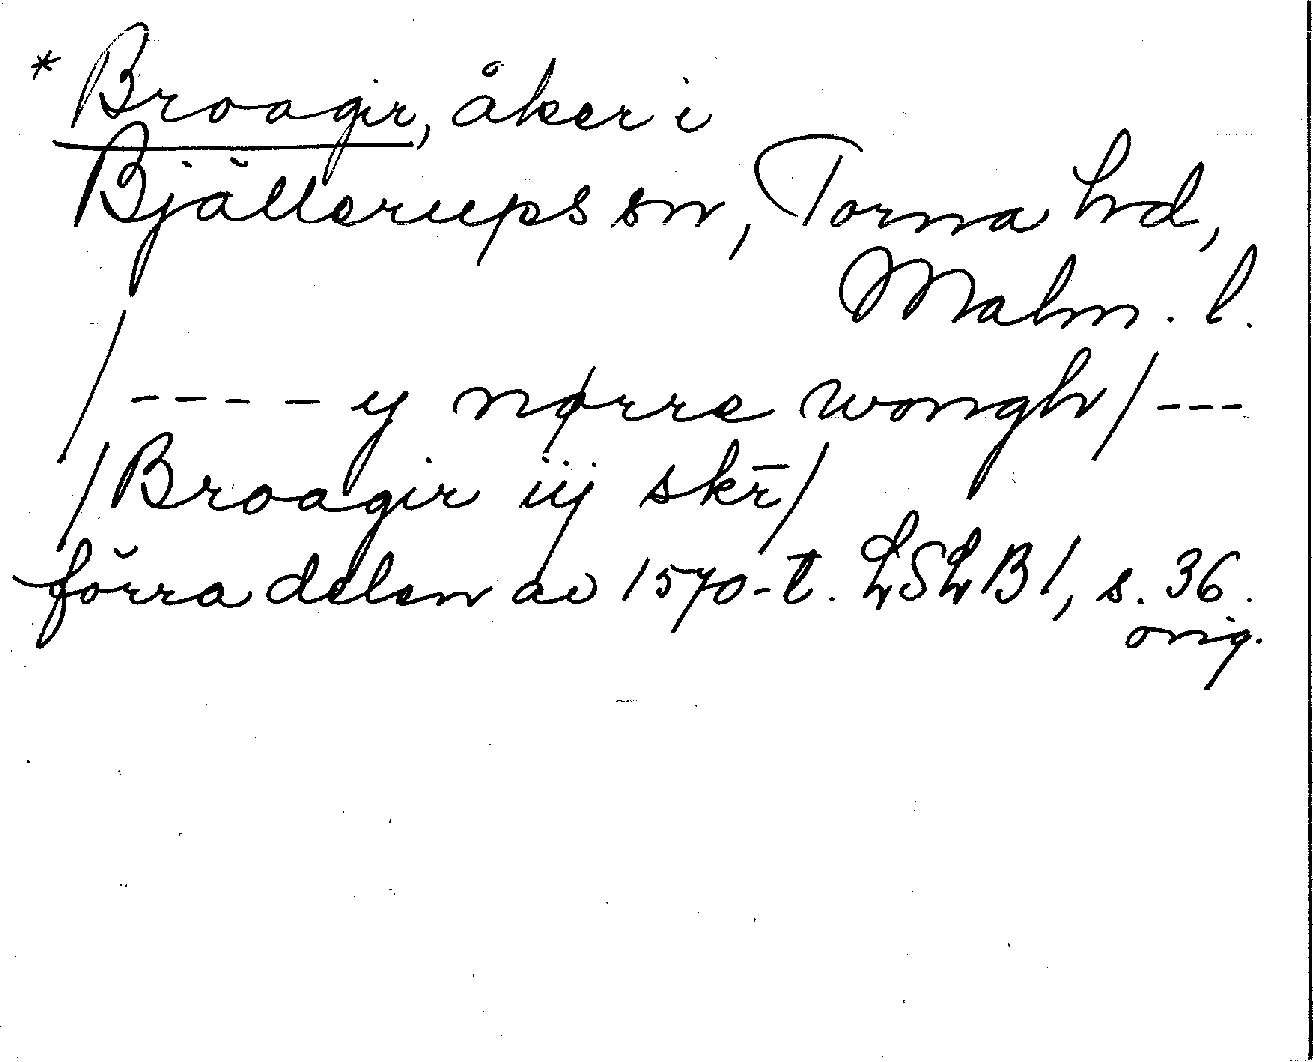 * Broagir, åker i
Bjällerups sn, Torna hd,
Malm. l.
/ ---- y nørre wongh / ---
/ Broagir iij skr̄ /
förra delen av 1570-t. LSLB1, s. 36.
orig.